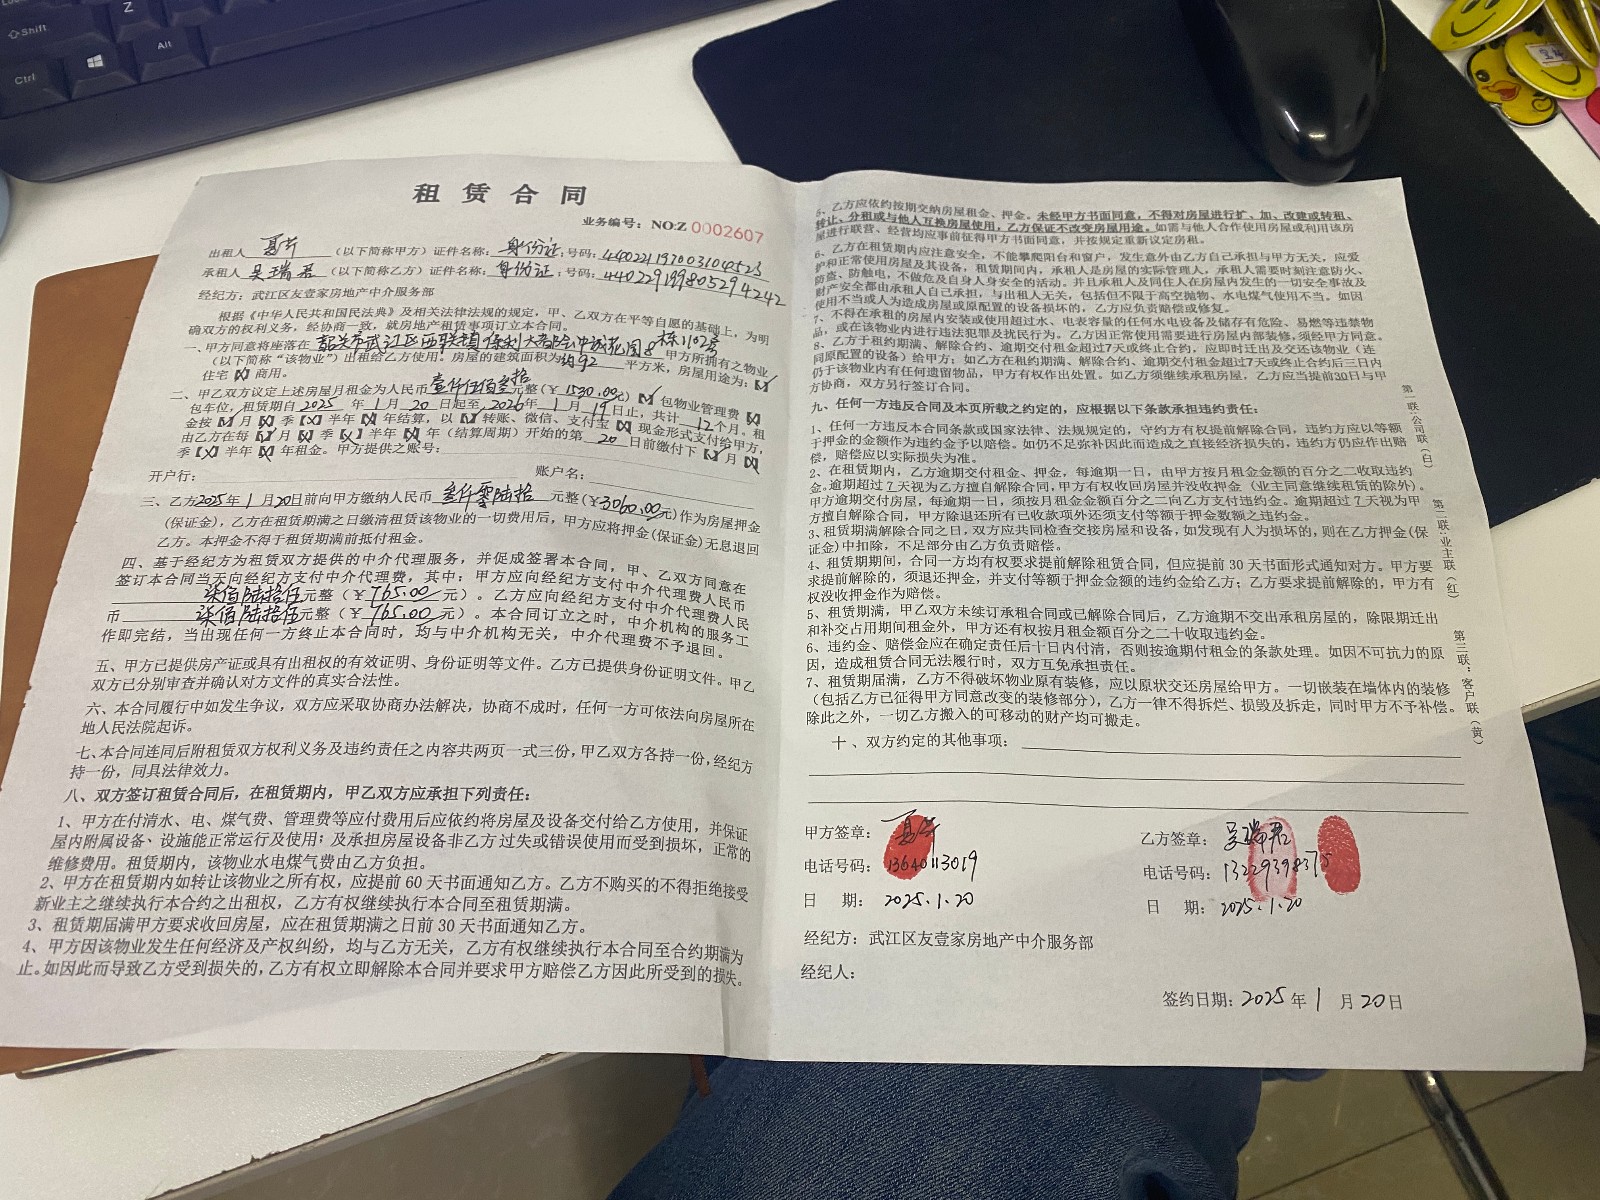 Shift
Z
Ctrl
Alt
租 赁 合 同
业务编号：NO:Z 0002607
出租人 （以下简称甲方）证件名称：身份证；号码：
承租人 吴瑞君 （以下简称乙方）证件名称：身份证；号码：440229199805294242
经纪方：武江区友壹家房地产中介服务部
根据《中华人民共和国民法典》及相关法律法规的规定，甲、乙双方在平等自愿的基础上，为明
确双方的权利义务，经协商一致，就房地产租赁事项订立本合同。
一、甲方同意将座落在 韶关市武江区西联镇保利大都会中诚花园8栋1102号 甲方所拥有之物业
（以下简称“该物业”）出租给乙方使用。房屋的建筑面积为约92平方米，房屋用途为：【√】
住宅【×】商用。
二、甲乙双方议定上述房屋月租金为人民币壹仟伍佰叁拾元整（￥1530.00元）【√】包物业管理费【×】
包车位，租赁期自2025年1月20日起至2026年1月19日止，共计12个月。租
金按【√】月【×】季【×】半年【×】年结算，以【√】转账、微信、支付宝【×】现金形式支付给甲方，
由乙方在每【√】月【×】季【×】半年【×】年（结算周期）开始的第20日前缴付下【√】月【×】
季【×】半年【×】年租金。甲方提供之账号：
开户行： 账户名：
三、乙方2025年1月20日前向甲方缴纳人民币叁仟零陆拾元整（￥3060.00元）作为房屋押金
（保证金），乙方在租赁期满之日缴清租赁该物业的一切费用后，甲方应将押金（保证金）无息退回
乙方。本押金不得于租赁期满前抵付租金。
四、基于经纪方为租赁双方提供的中介代理服务，并促成签署本合同，甲、乙双方同意在
签订本合同当天向经纪方支付中介代理费，其中：甲方应向经纪方支付中介代理费人民币
柒佰陆拾伍元整（￥765.00元）。乙方应向经纪方支付中介代理费人民
币 柒佰陆拾伍元整（￥765.00元）。本合同订立之时，中介机构的服务工
作即完结，当出现任何一方终止本合同时，均与中介机构无关，中介代理费不予退回。
五、甲方已提供房产证或具有出租权的有效证明、身份证明等文件。乙方已提供身份证明文件。甲乙
双方已分别审查并确认对方文件的真实合法性。
六、本合同履行中如发生争议，双方应采取协商办法解决，协商不成时，任何一方可依法向房屋所在
地人民法院起诉。
七、本合同连同后附租赁双方权利义务及违约责任之内容共两页一式三份，甲乙双方各持一份，经纪方
持一份，同具法律效力。
八、双方签订租赁合同后，在租赁期内，甲乙双方应承担下列责任：
1、甲方在付清水、电、煤气费、管理费等应付费用后应依约将房屋及设备交付给乙方使用，并保证
屋内附属设备、设施能正常运行及使用；及承担房屋设备非乙方过失或错误使用而受到损坏，正常的
维修费用。租赁期内，该物业水电煤气费由乙方负担。
2、甲方在租赁期内如转让该物业之所有权，应提前60天书面通知乙方。乙方不购买的不得拒绝接受
新业主之继续执行本合约之出租权，乙方有权继续执行本合同至租赁期满。
3、租赁期届满甲方要求收回房屋，应在租赁期满之日前30天书面通知乙方。
4、甲方因该物业发生任何经济及产权纠纷，均与乙方无关，乙方有权继续执行本合同至合约期满为
止。如因此而导致乙方受到损失的，乙方有权立即解除本合同并要求甲方赔偿乙方因此所受到的损失。
5、乙方应依约按期交纳房屋租金、押金。未经甲方书面同意，不得对房屋进行扩、加、改建或转租、
转让、分租或与他人互换房屋使用，乙方保证不改变房屋用途。如需与他人合作使用房屋或利用该房
屋进行联营、经营均应事前征得甲方书面同意，并按规定重新议定房租。
6、乙方在租赁期内应注意安全，不能攀爬阳台和窗户，发生意外由乙方自己承担与甲方无关，应爱
护和正常使用房屋及其设备，租赁期间内，承租人是房屋的实际管理人，承租人需要时刻注意防火、
防盗、防触电，不做危及自身人身安全的活动。并且承租人及同住人在房屋内发生的一切安全事故及
财产安全都由承租人自己承担，与出租人无关，包括但不限于高空抛物、水电煤气使用不当。如因
使用不当或人为造成房屋或原配置的设备损坏的，乙方应负责赔偿或修复。
7、不得在承租的房屋内安装或使用超过水、电表容量的任何水电设备及储存有危险、易燃等违禁物
品，或在该物业内进行违法犯罪及扰民行为。乙方因正常使用需要进行房屋内部装修，须经甲方同意。
8、乙方于租约期满、解除合约、逾期交付租金超过7天或终止合约，应即时迁出及交还该物业（连
同原配置的设备）给甲方；如乙方在租约期满、解除合约、逾期交付租金超过7天或终止合约后三日内
仍于该物业内有任何遗留物品，甲方有权作出处置。如乙方须继续承租房屋，乙方应当提前30日与甲
方协商，双方另行签订合同。
九、任何一方违反合同及本页所载之约定的，应根据以下条款承担违约责任：
1、任何一方违反本合同条款或国家法律、法规规定的，守约方有权提前解除合同，违约方应以等额
于押金的金额作为违约金予以赔偿。如仍不足弥补因此而造成之直接经济损失的，违约方仍应作出赔
偿，赔偿应以实际损失为准。
2、在租赁期内，乙方逾期交付租金、押金，每逾期一日，由甲方按月租金金额的百分之二收取违约
金。逾期超过7天视为乙方擅自解除合同，甲方有权收回房屋并没收押金（业主同意继续租赁的除外）。
甲方逾期交付房屋，每逾期一日，须按月租金金额百分之二向乙方支付违约金。逾期超过7天视为甲
方擅自解除合同，甲方除退还所有已收款项外还须支付等额于押金数额之违约金。
3、租赁期满解除合同之日，双方应共同检查交接房屋和设备，如发现有人为损坏的，则在乙方押金（保
证金）中扣除，不足部分由乙方负责赔偿。
4、租赁期期间，合同一方均有权要求提前解除租赁合同，但应提前30天书面形式通知对方。甲方要
求提前解除的，须退还押金，并支付等额于押金金额的违约金给乙方；乙方要求提前解除的，甲方有
权没收押金作为赔偿。
5、租赁期满，甲乙双方未续订承租合同或已解除合同后，乙方逾期不交出承租房屋的，除限期迁出
和补交占用期间租金外，甲方还有权按月租金额百分之二十收取违约金。
6、违约金、赔偿金应在确定责任后十日内付清，否则按逾期付租金的条款处理。如因不可抗力的原
因，造成租赁合同无法履行时，双方互免承担责任。
7、租赁期届满，乙方不得破坏物业原有装修，应以原状交还房屋给甲方。一切嵌装在墙体内的装修
（包括乙方已征得甲方同意改变的装修部分），乙方一律不得拆烂、损毁及拆走，同时甲方不予补偿。
除此之外，一切乙方搬入的可移动的财产均可搬走。
十、双方约定的其他事项：
甲方签章：
电话号码：13640113019
日 期：2025.1.20
乙方签章：吴瑞君
电话号码：13229398375
日 期：2025.1.20
经纪方：武江区友壹家房地产中介服务部
经纪人：
签约日期：2025年1月20日
第一联：公司联（白）
第二联：业主联（红）
第三联：客户联（黄）